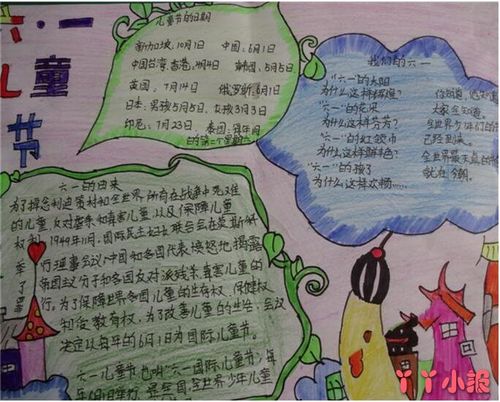 六·一
儿童
节
儿童节的日期
新加坡,10月1日 中国:6月1日
中国台湾,香港:4月4日 韩国:5月5日
英国:7月14日 俄罗斯:6月1日
日本:男孩5月5日,女孩3月3日
印尼:7月23日,泰国:每年1月
的第二个星期六
我们的六一
"六一"的太阳
为什么这样辉煌?
"六一"的花朵
为什么这样芬芳?
"六一"的红领巾
为什么这样鲜丰色?
"六一"的孩子
为什么这样欢畅……
你知道,他知道
大家全知道,
全世界少年们的节
已经到来。
全世界最
就在今朝。
六一的由来
为了悼念利迪策村和全世界所有在战争中死难
的儿童,反对虐杀和毒害儿童,以及保障儿童
权利,1949年11月,国际民主妇女联合会在莫斯科
举行理事会议,中国和各国代表愤怒地揭露
了帝国主义分子和各国反对派残杀、毒害儿童的
罪行。为了保障世界各国儿童的生存权、保健权
和受教育权,为了改善儿童的生活,会议
决定以每年的6月1日为国际儿童节。
六一儿童节,也叫"六一国际儿童节",每年
6月1日举行,是全国,全世界少年儿童
丫丫小报